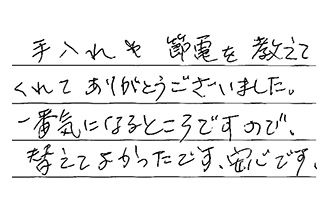 手入れや節電を教えて
くれてありがとうございました。
一番気になるところですので、
替えてよかったです、安心です。